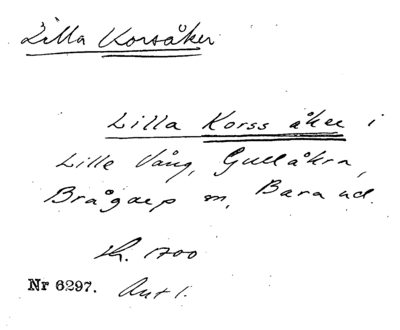 Lilla Korsåker
Lilla Korss åker i
Lille Vång, Gullåkra,
Brågarp sn, Bara hd.
1700
Nr 6297. Akt 1.